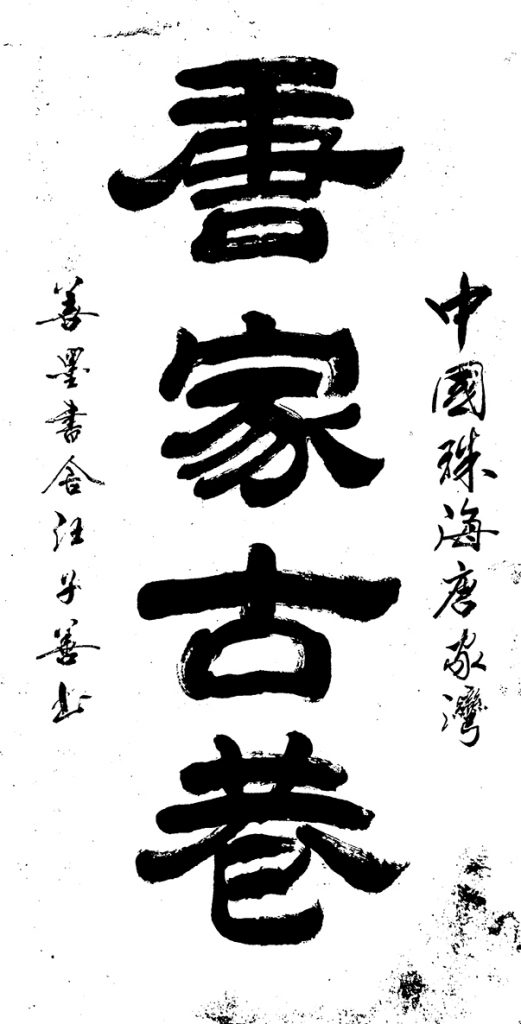 中國珠海唐家灣
唐家古巷
善墨書舍汪子善書